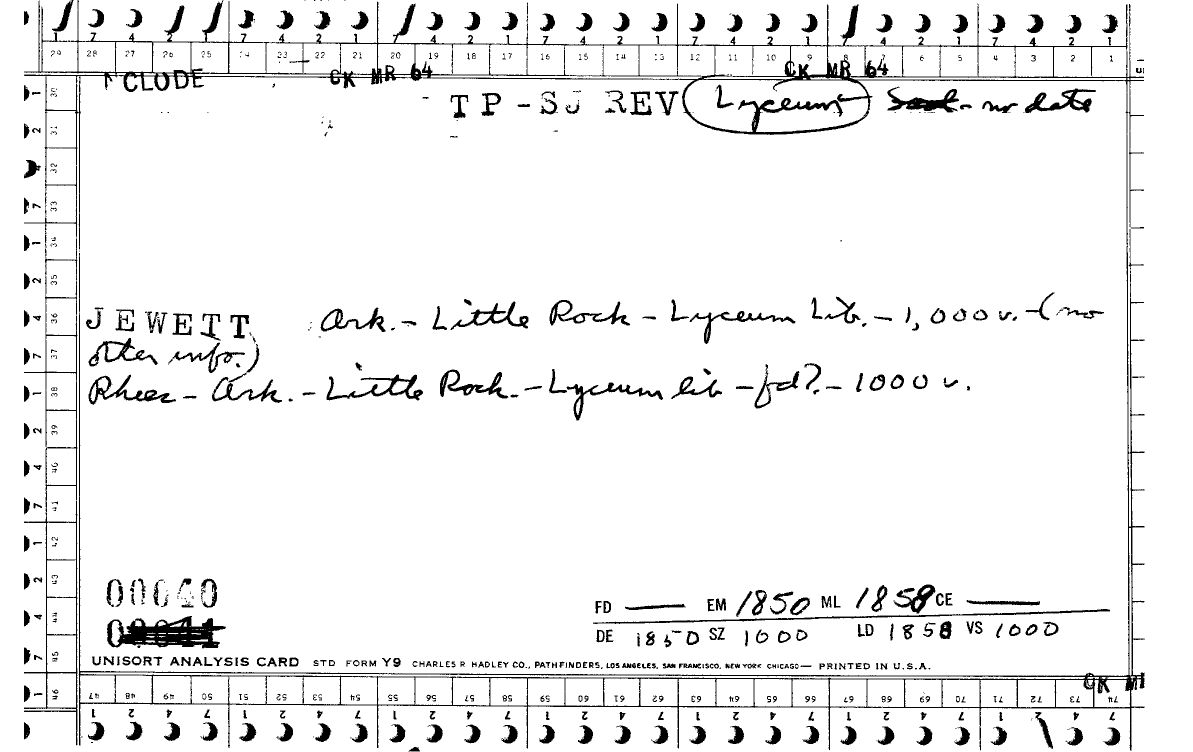 7 4 2 1 7 4 2 1 7 4 2 1 7 4 2 1 7 4 2 1 7 4 2 1 7 4 2 1
29 28 27 26 25 24 23 22 21 20 19 18 17 16 15 14 13 12 11 10 9 8 7 6 5 4 3 2 1
CLUDE CK MR 64 CK MR 64
TP-SJ REV Lyceum - no date
JEWETT Ark. - Little Rock - Lyceum Lib. - 1,000 v. - (no
other info.)
Rhees - Ark. - Little Rock. - Lyceum lib - fd? - 1000 v.
00040
FD — EM 1850 ML 1858 CE —
DE 1850 SZ 1000 LD 1858 VS 1000
UNISORT ANALYSIS CARD STD FORM Y9 CHARLES R HADLEY CO., PATHFINDERS, LOS ANGELES, SAN FRANCISCO, NEW YORK CHICAGO — PRINTED IN U.S.A.
46 47 48 49 50 51 52 53 54 55 56 57 58 59 60 61 62 63 64 65 66 67 68 69 70 71 72 73 74
1 2 4 7 1 2 4 7 1 2 4 7 1 2 4 7 1 2 4 7 1 2 4 7 1 2 4 7